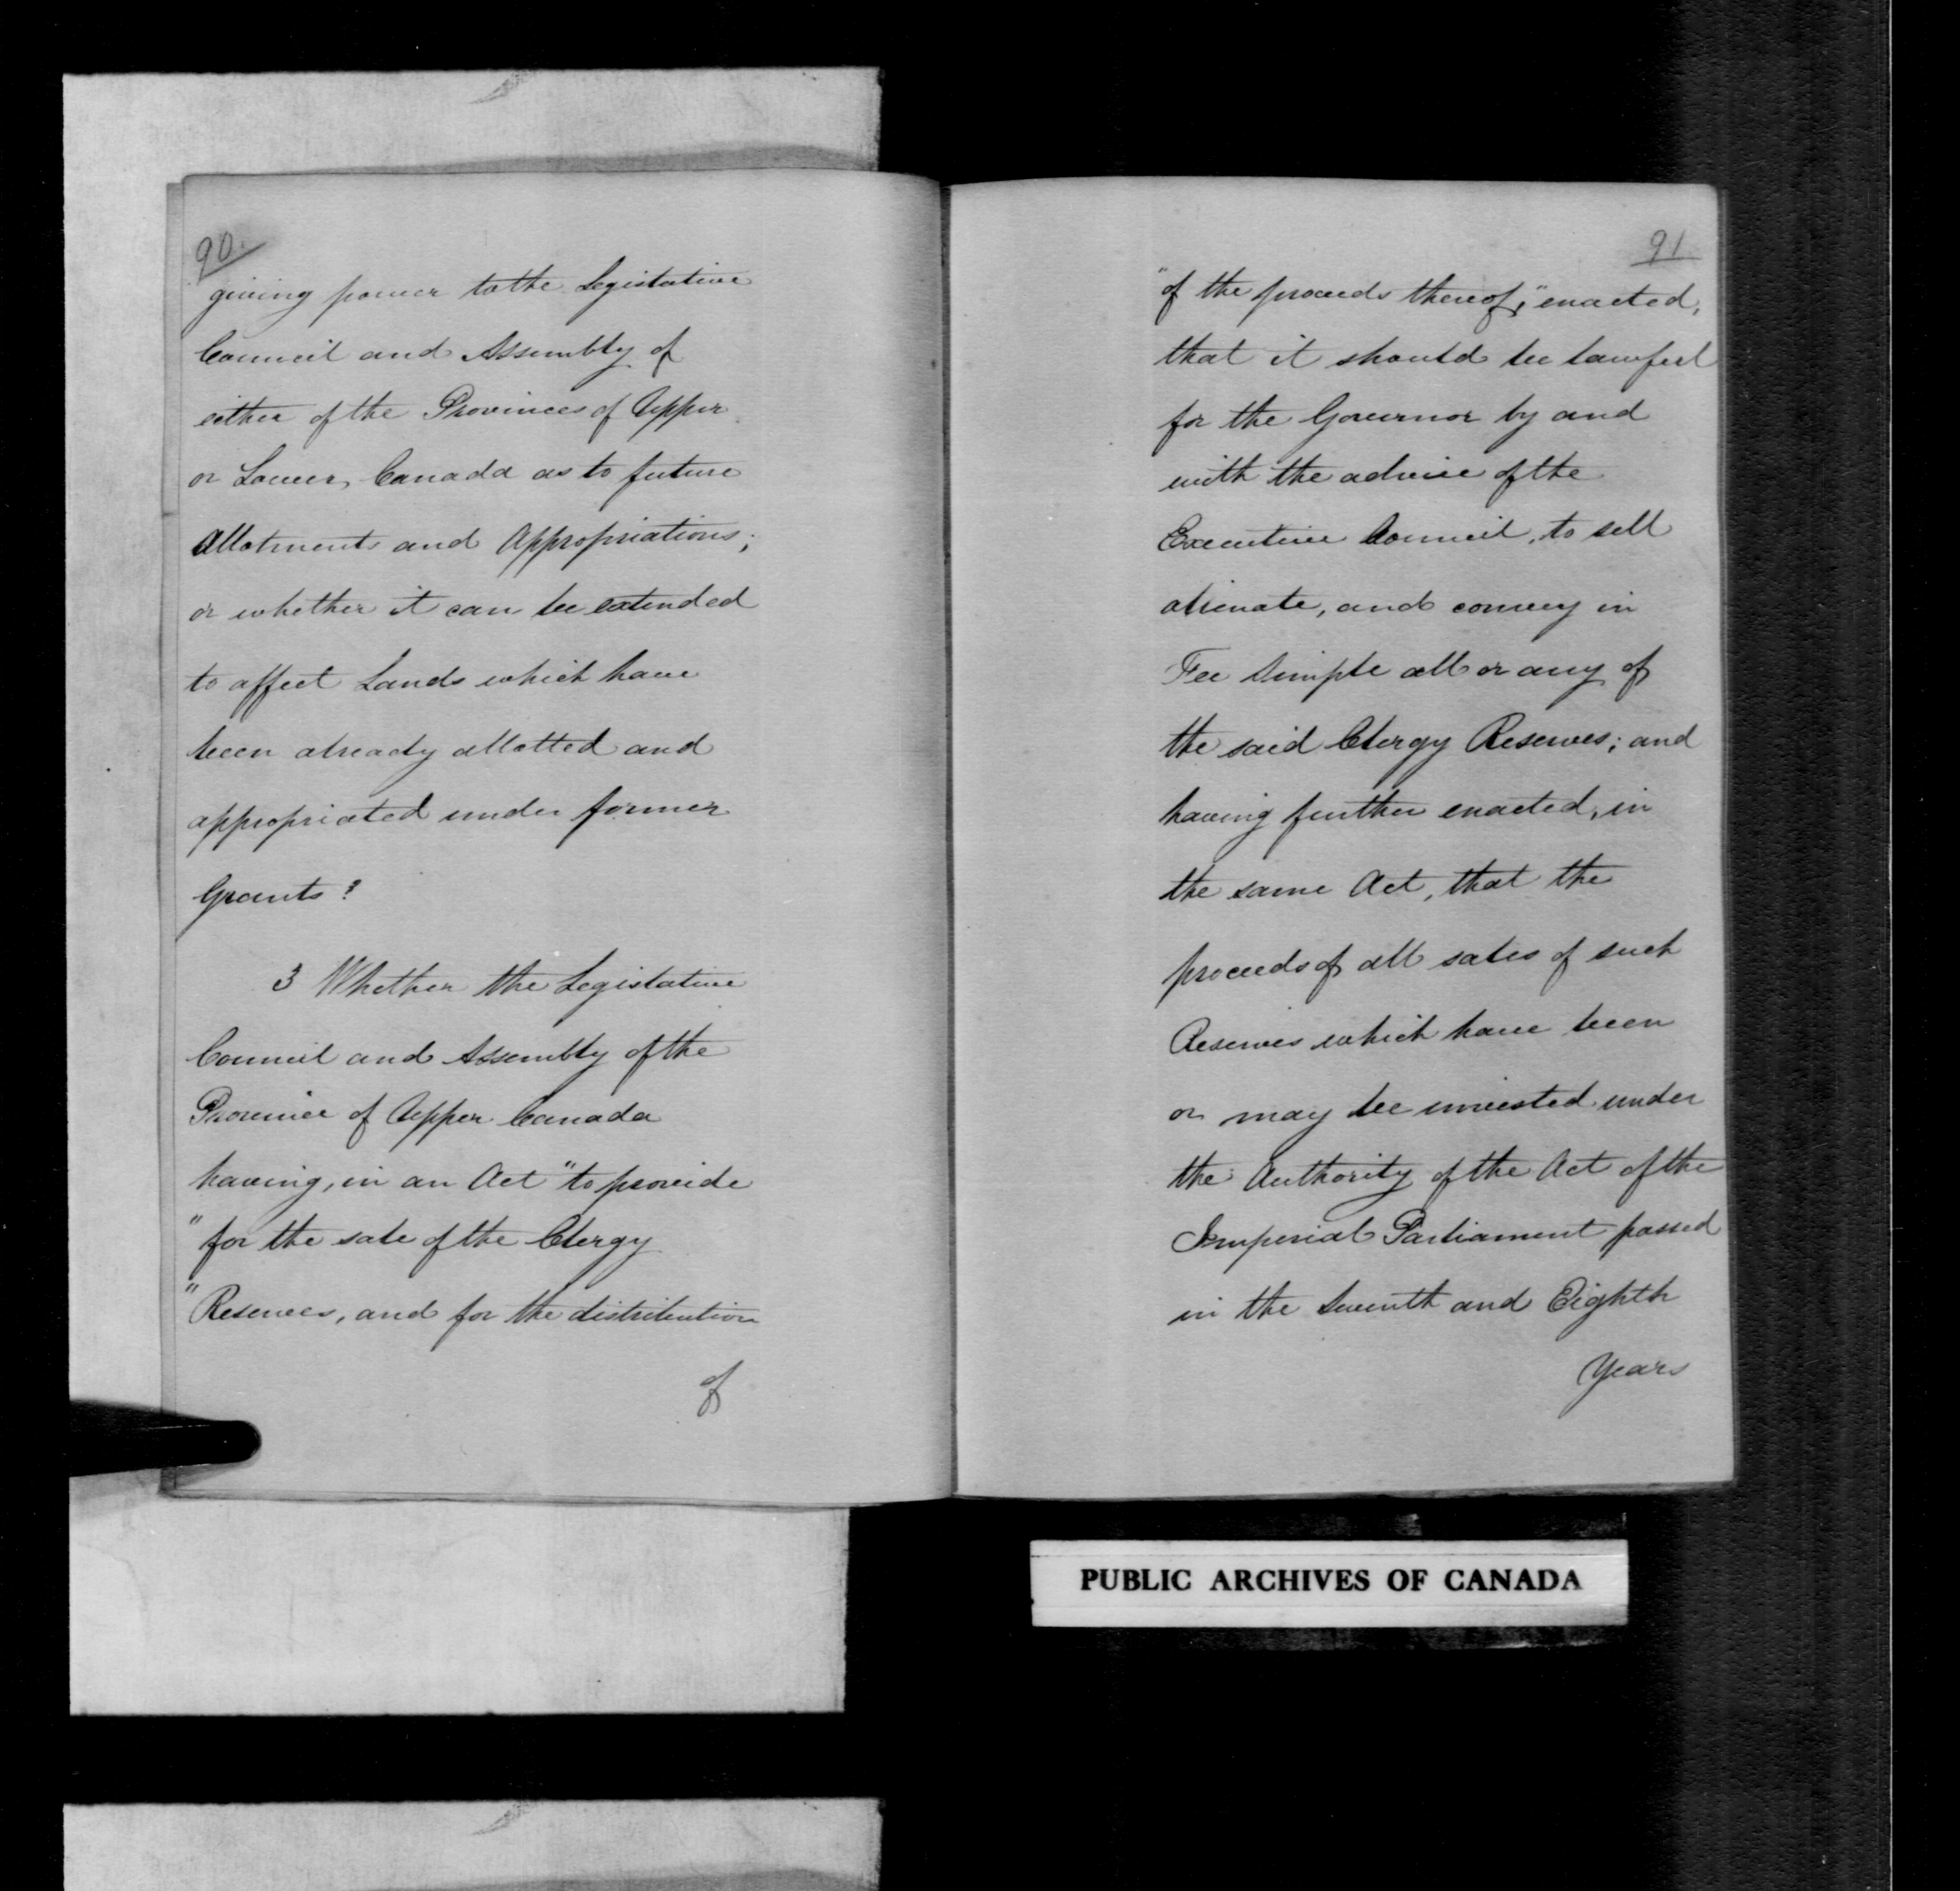 90.
giving power to the Legislative
Council and Assembly of
either of the Provinces of Upper
or Lower Canada as to future
Allotments and Appropriations;
or whether it can be extended
to affect Lands which have
been already allotted and
appropriated under former
Grants?
3 Whether the Legislative
Council and Assembly of the
Province of Upper Canada
having, in an Act "to provide
"for the sale of the Clergy
"Reserves, and for the distribution
of
91
"of the proceeds thereof," enacted,
that it should be lawful
for the Governor by and
with the advice of the
Executive Council, to sell
alienate, and convey in
Fee Simple all or any of
the said Clergy Reserves; and
having further enacted, in
the same Act, that the
proceeds of all sales of such
Reserves which have been
or may be invested under
the Authority of the Act of the
Imperial Parliament passed
in the Seventh and Eighth
Years
PUBLIC ARCHIVES OF CANADA